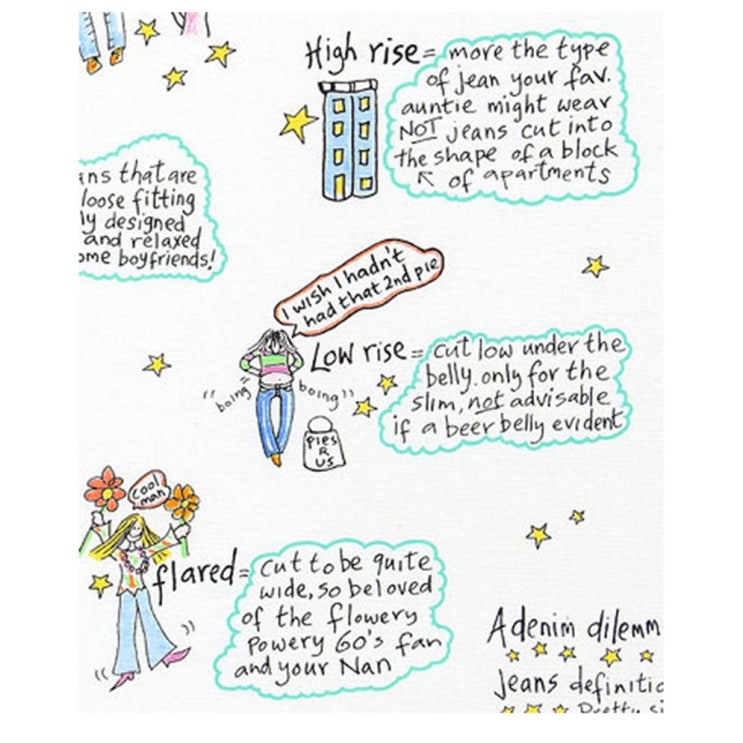 High rise = more the type
of jean your fav.
auntie might wear
NOT jeans cut into
the shape of a block
of apartments
ns that are
loose fitting
ly designed
and relaxed
ome boyfriends!
I wish I hadn't
had that 2nd pie
Low rise = cut low under the
belly. only for the
slim, not advisable
if a beer belly evident
"boing = boing"
PIES
R
US
cool
man
flared = cut to be quite
wide, so beloved
of the flowery
powery 60's fan
and your Nan
A denim dilemm
Jeans definitio
Pretty si